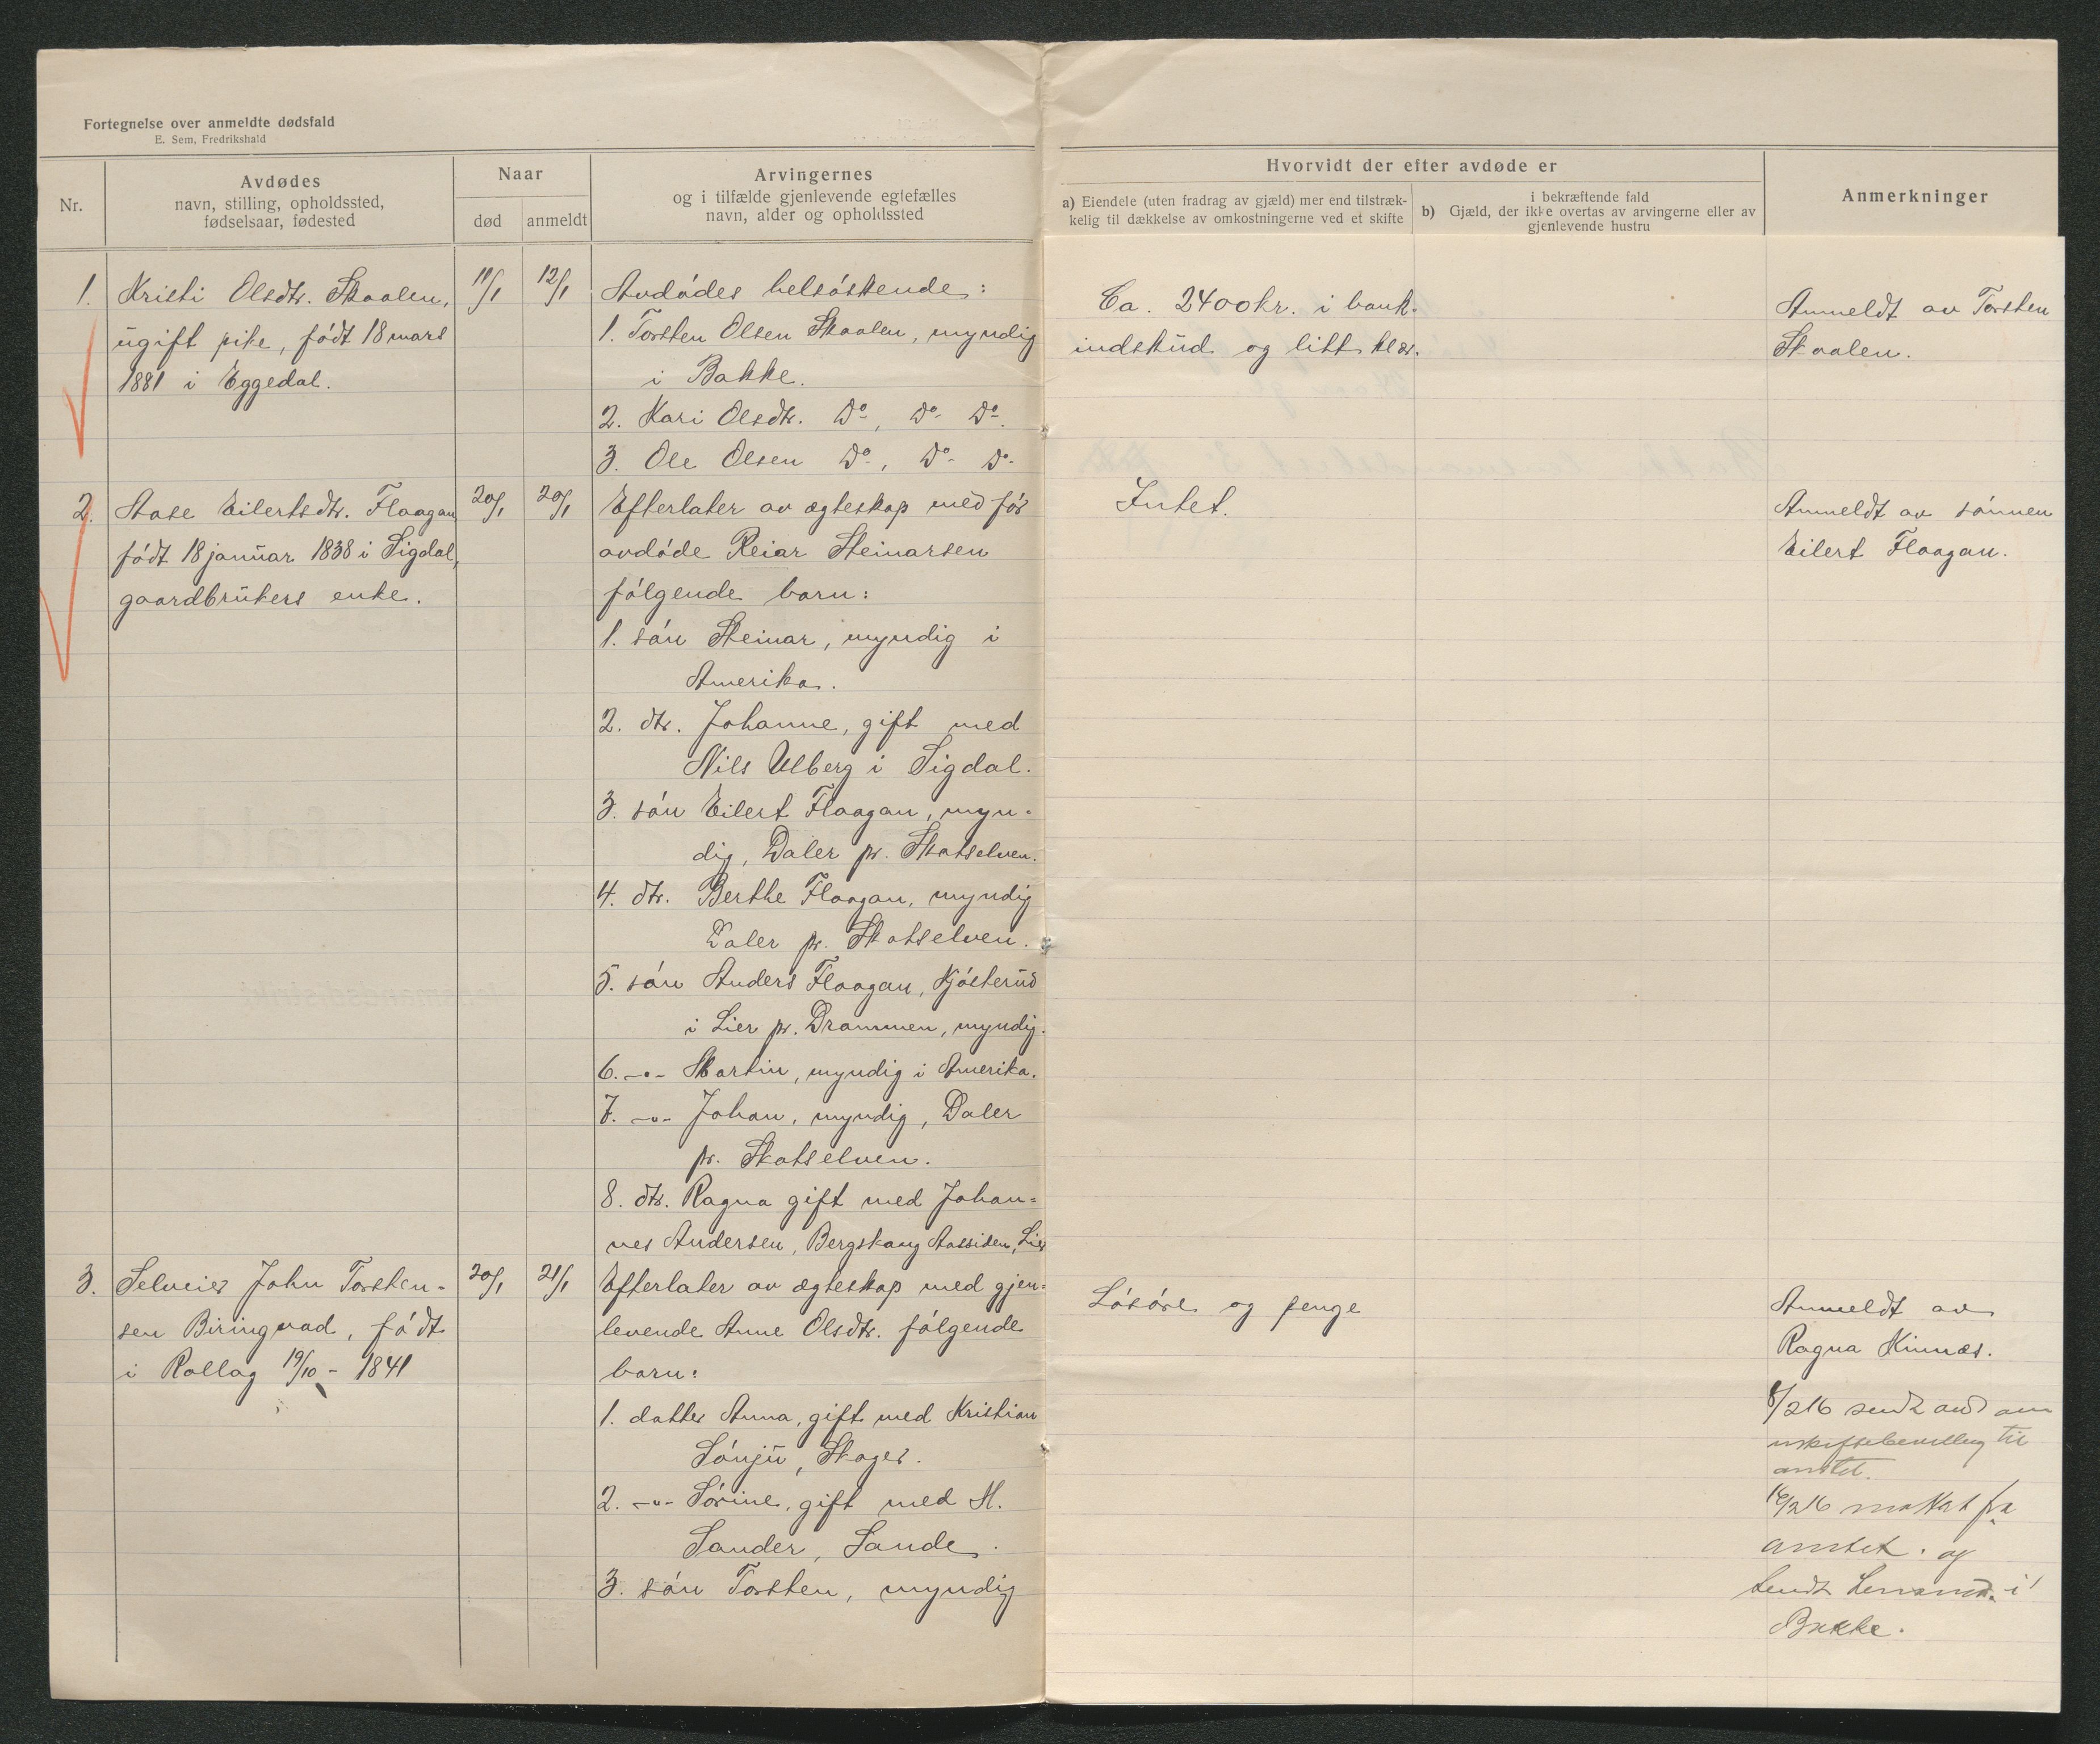 Fortegnelse over anmeldte dødsfald
E. Sem, Fredrikshald
Nr.
Avdødes
navn, stilling, opholdssted,
fødselsaar, fødested
Naar
død
anmeldt
Arvingernes
og i tilfælde gjenlevende egtefælles
navn, alder og opholdssted
Hvorvidt der efter avdøde er
a) Eiendele (uten fradrag av gjæld) mer end tilstræk-
kelig til dækkelse av omkostningerne ved et skifte
b) i bekræftende fald
Gjæld, der ikke overtas av arvingerne eller av
gjenlevende hustru
Anmerkninger
1.
Kristi Olsdtr. Skaalen,
ugift pike, født 18 mars
1881 i Eggedal.
11/1
12/1
Avdødes helsøskende:
1. Torsten Olsen Skaalen, myndig
i Bakke.
2. Kari Olsdtr. Do, Do Do.
3. Ole Olsen Do, Do Do
Ca. 2400 kr. i bank-
indskud og litt klær.
Anmeldt av Torsten
Skaalen.
2.
Aase Eilertsdtr. Flaagan,
født 18 januar 1838 i Sigdal,
gaardbrukers enke.
20/1
20/1
Efterlater av ægteskap med før
avdøde Reiar Steinarsen
følgende barn:
1. søn Steinar, myndig i
Amerika.
2. dtr. Johanne, gift med
Nils Ulberg i Sigdal.
3. søn Eilert Flaagan, myn-
dig, Daler pr. Skotselven.
4. dtr. Berthe Flaagan, myndig
Daler pr. Skotselven.
5. søn Anders Flaagan, Kjøsterud
i Lier pr. Drammen, myndig.
6. -"- Martin, myndig i Amerika.
7. -"- Johan, myndig, Daler
pr. Skotselven.
8. dtr. Ragna gift med Johan-
nes Andersen, Bergskaug Aassiden, Lier
Intet.
Anmeldt av sønnen
Eilert Flaagan.
3.
Selveier John Torsten-
sen Biringvad, født
i Rollag 19/10 - 1841
20/1
21/1
Efterlater av ægteskap med gjen-
levende Anne Olsdtr. følgende
barn:
1. datter Anna, gift med Kristian
Sønju, Skoger.
2. -"- Sørine, gift med M.
Sander, Sande.
3. søn Torsten, myndig
Løsøre og penge
Anmeldt av
Ragna Kinnes.
8/2 16 sendt and om
uskiftebevilling til
amtet.
16/2 16 mottat fra
amtet og
sendt Lensmd. i
Bakke.